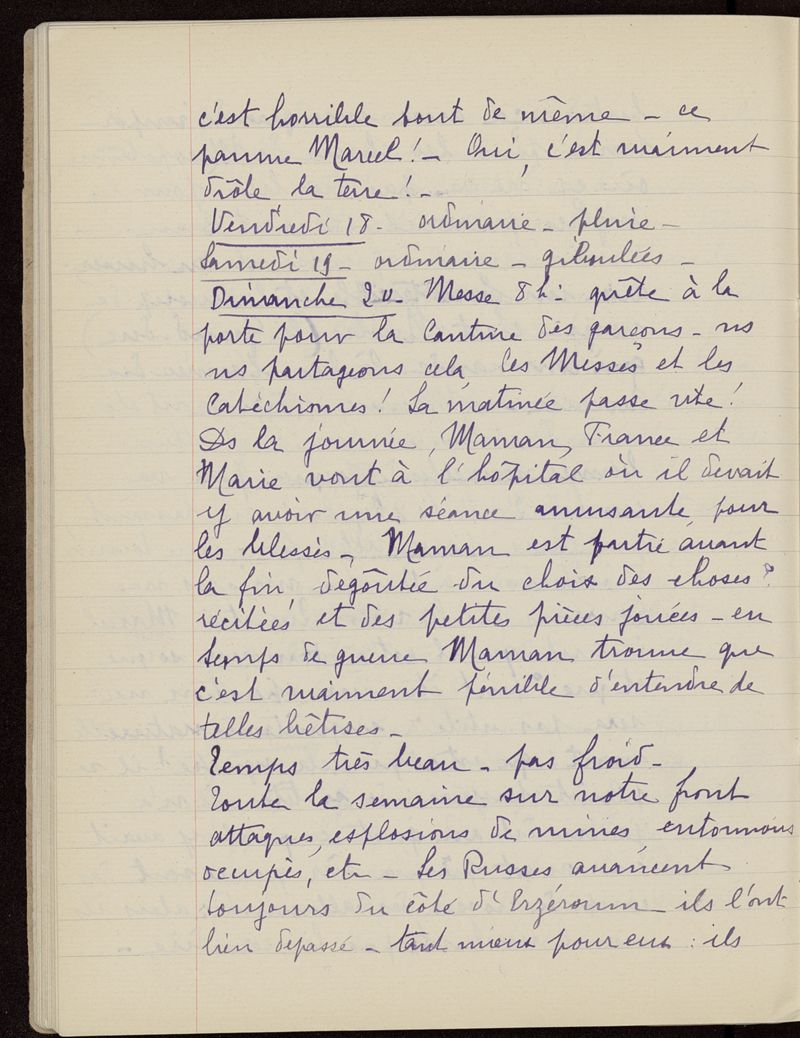 c'est horrible tout de même – ce
pauvre Marcel! – Oui, c'est vraiment
drôle la terre! –
Vendredi 18 – ordinaire – pluie –
Samedi 19 – ordinaire – giboulées –
Dimanche 20 – Messe 8h: quête à la
porte pour la Cantine des garçons – ns
ns partageons cela, les Messes et les
Catéchismes! La matinée passe vite!
Ds la journée, Maman, France et
Marie vont à l'hôpital où il devait
y avoir une séance amusante pour
les blessés – Maman est partie avant
la fin, dégoûtée du choix des choses
récitées et des petites pièces jouées – en
temps de guerre Maman trouve que
c'est vraiment pénible d'entendre de
telles bêtises –
Temps très beau – pas froid –
Toute la semaine sur notre front
attaques, explosions de mines, entonnoirs
occupés, etc – Les Russes avancent
toujours du côté d'Erzéroum – ils l'ont
bien dépassé – tant mieux pour eux : ils